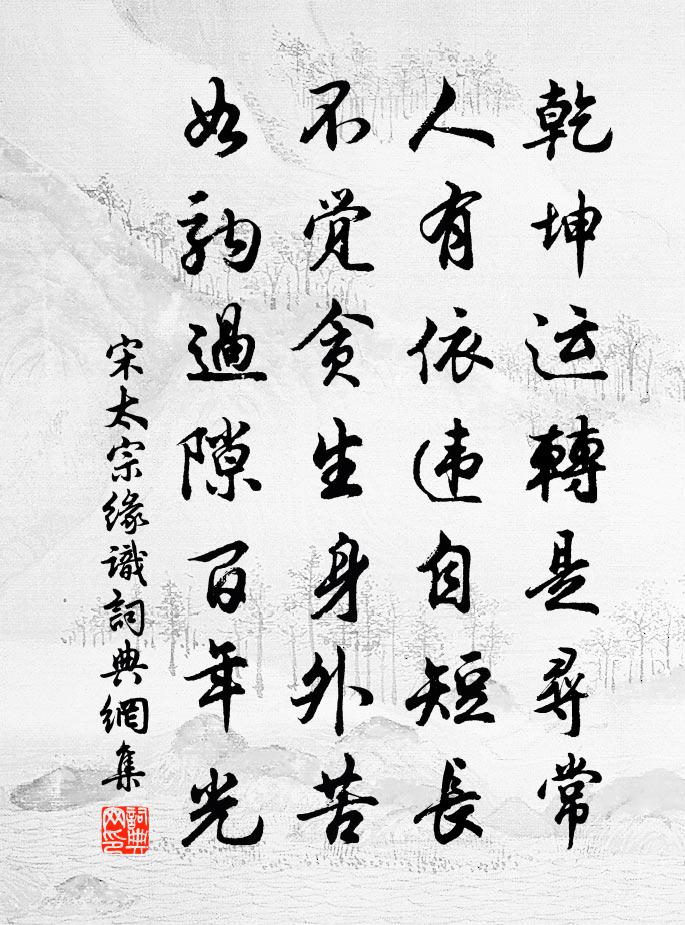 乾坤运轉是尋常
人有依违自短長
不觉贪生身外苦
如駒過隙百年光
宋太宗緣識詞典網集
詞典网印